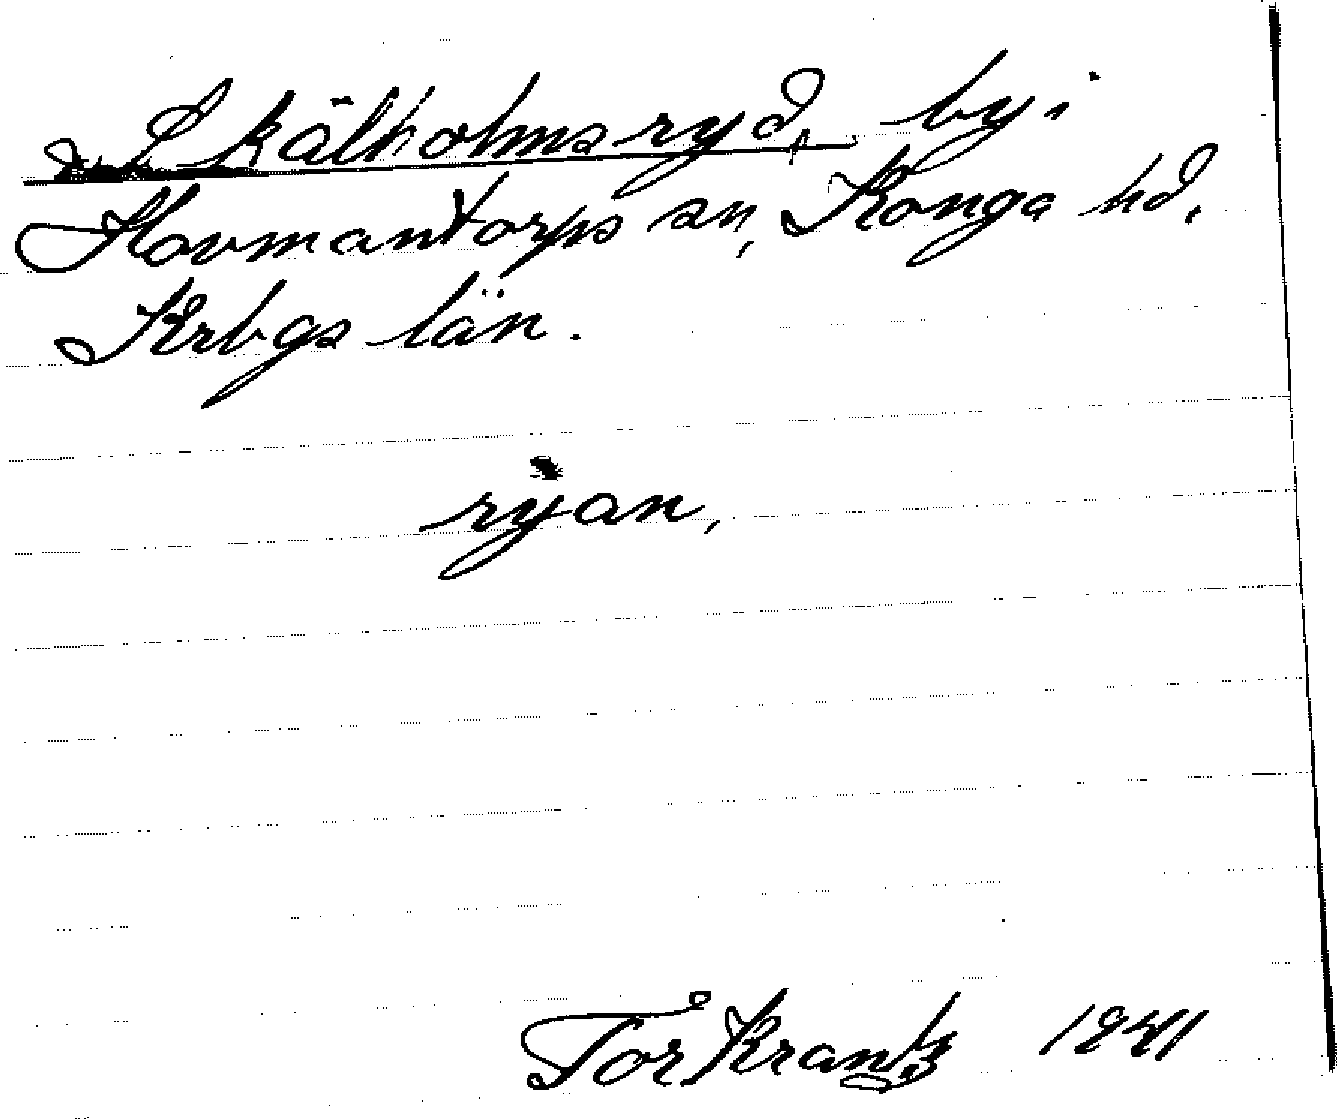 Skälholmsryd, by i
Hovmantorps sn, Konga hd.
Krbgs län.
ryan,
Tor Krantz 1941